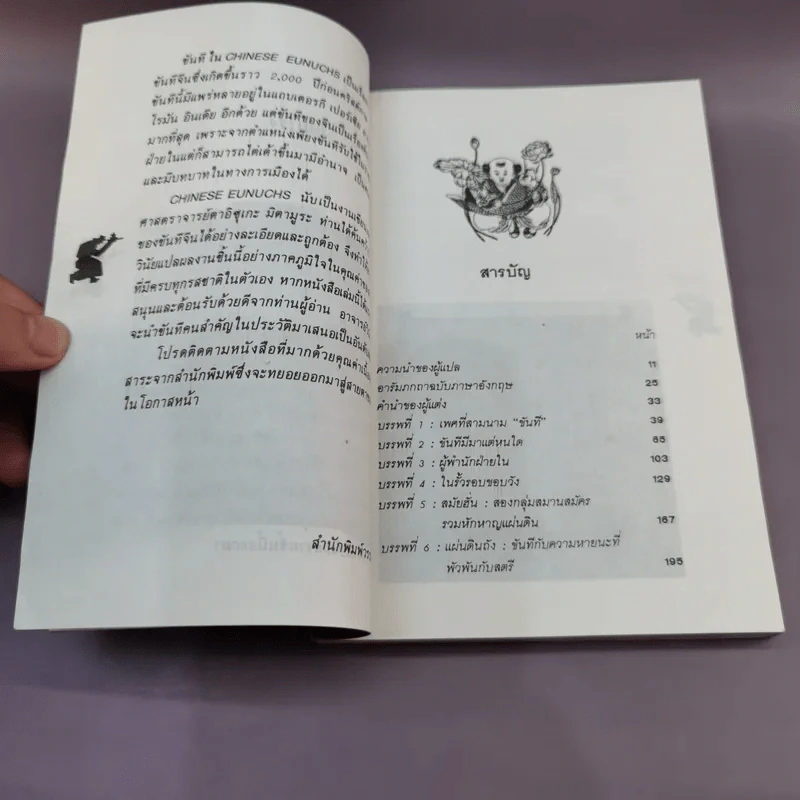 ขันที ใน CHINESE EUNUCHS เป็นเรื่อง
ขันทีจีนซึ่งเกิดขึ้นราว 2,000 ปีก่อนคริสต์
ขันทีนี้มีแพร่หลายอยู่ในแถบเตอรกี เปอร์เซีย
โรมัน อินเดีย อีกด้วย แต่ขันทีของจีนเป็นเรื่อง
มากที่สุด เพราะจากตำแหน่งเพียงขันทีรับใช้
ฝ่ายในแต่ก็สามารถไต่เต้าขึ้นมามีอำนาจ
และมีบทบาทในทางการเมืองได้
CHINESE EUNUCHS นับเป็นงานเขียน
ศาสตราจารย์ตาอิซุเกะ มิตามูระ ท่านได้ค้น
ของขันทีจีนได้อย่างละเอียดและถูกต้อง จึงทำ
วินัยแปลผลงานชิ้นนี้อย่างภาคภูมิใจในคุณค่า
ที่มีครบทุกรสชาติในตัวเอง หากหนังสือเล่มนี้ได้
สนุนและต้อนรับด้วยดีจากท่านผู้อ่าน อาจารย์
จะนำขันทีคนสำคัญในประวัติมาเสนอเป็นอันดับ
โปรดติดตามหนังสือที่มากด้วยคุณค่า
สาระจากสำนักพิมพ์ซึ่งจะทยอยออกมาสู่สายตา
ในโอกาสหน้า
สำนักพิมพ์
สารบัญ
หน้า
ความนำของผู้แปล 11
อารัมภกถาฉบับภาษาอังกฤษ 25
คำนำของผู้แต่ง 33
บรรพที่ 1 : เพศที่สามนาม "ขันที" 39
บรรพที่ 2 : ขันทีมีมาแต่หนใด 65
บรรพที่ 3 : ผู้พำนักฝ่ายใน 103
บรรพที่ 4 : ในรั้วรอบขอบวัง 129
บรรพที่ 5 : สมัยฮั่น : สองกลุ่มสมานสมัคร
รวมหักหาญแผ่นดิน 167
บรรพที่ 6 : แผ่นดินถัง : ขันทีกับความหายนะที่
พัวพันกับสตรี 195